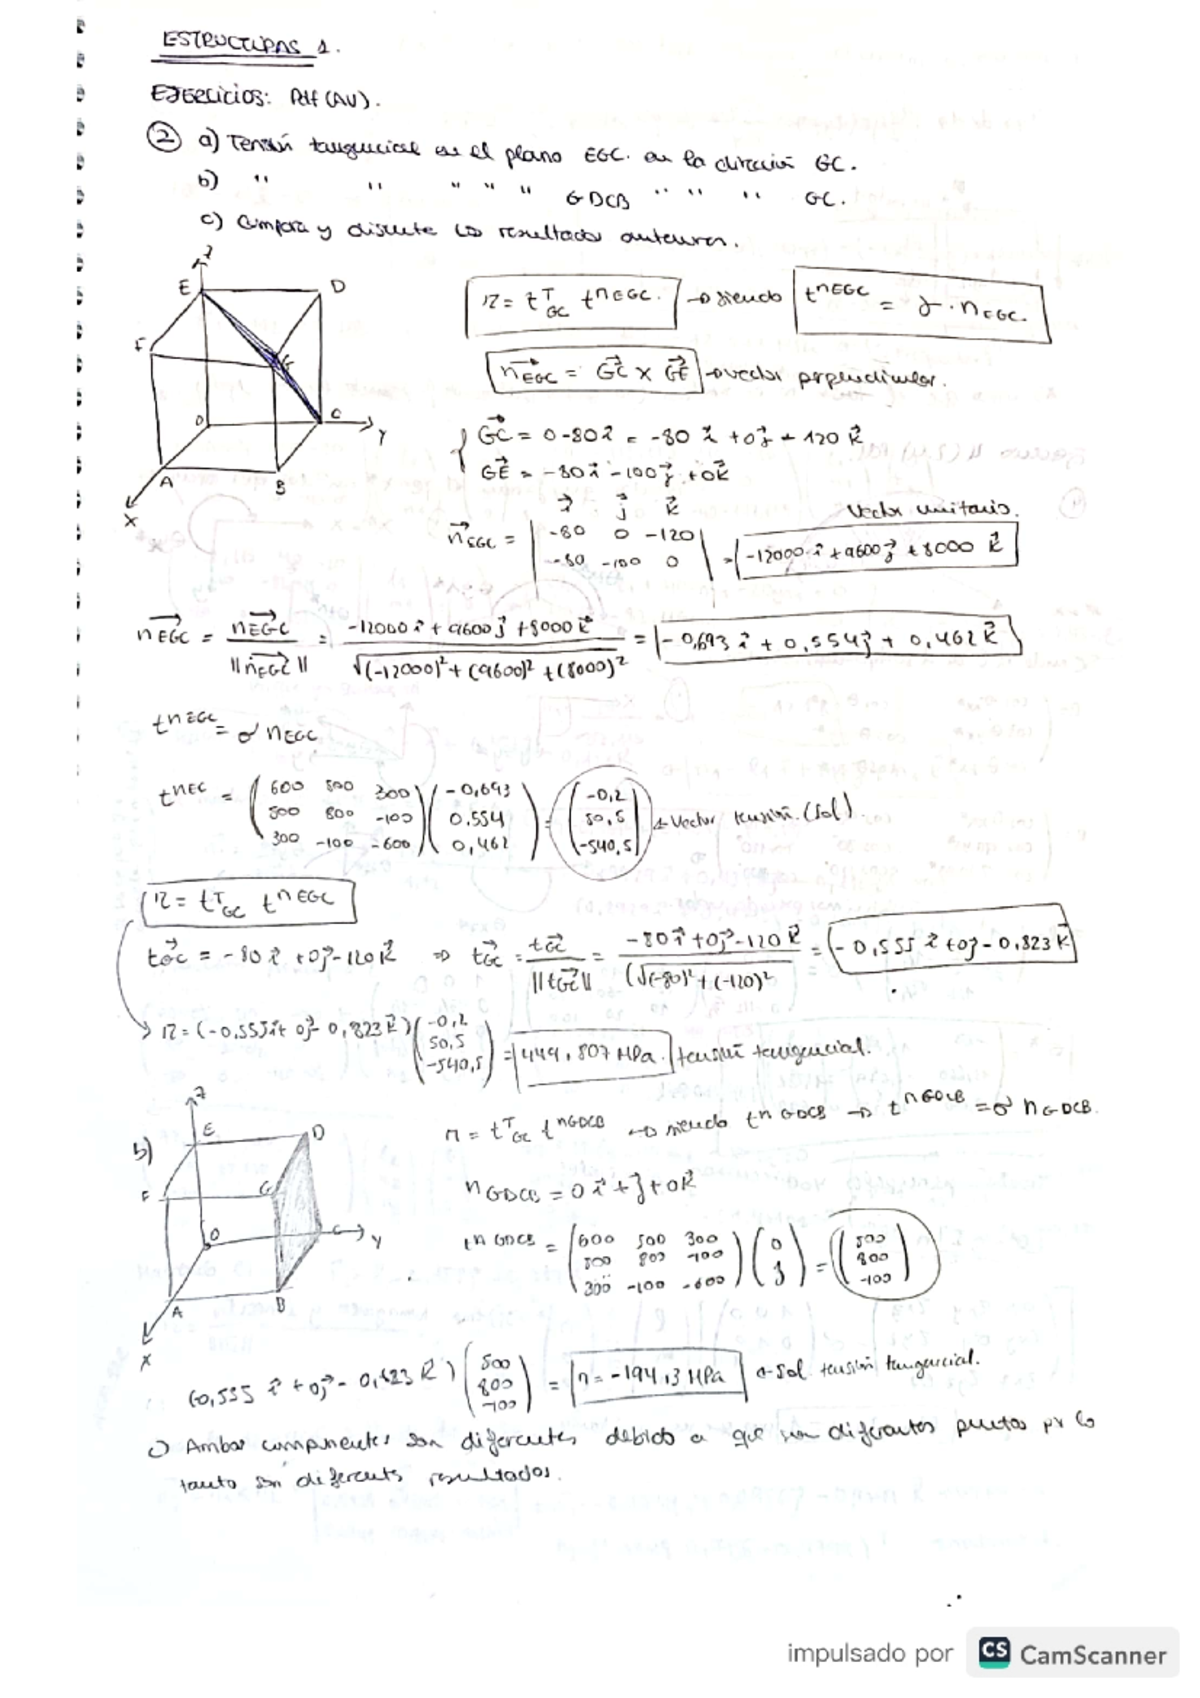 ESTRUCTURAS 1.
Ejercicios: RH (AU).
② a) Tensión tangencial en el plano EGC. en la dirección GC.
b) " " " " " GDCB " " " GC.
c) Compara y discute los resultados anteriores.
z
E D
F G
O C Y
A B
X
τ = t^T_GC t^nEGC. → siendo t^nEGC = σ · nEGC.
n⃗EGC = G⃗C × G⃗E → vector perpendicular.
G⃗C = 0-80i⃗ = -80 i⃗ + 0j⃗ - 120 k⃗
G⃗E = -80i⃗ - 100j⃗ + 0k⃗
i⃗ j⃗ k⃗ Vector unitario.
n⃗EGC = | -80 0 -120 | = -12000 i⃗ + 9600 j⃗ + 8000 k⃗
-80 -100 0
n⃗EGC = n⃗EGC / ||n⃗EGC|| = -12000 i⃗ + 9600 j⃗ + 8000 k⃗ / √(-12000)² + (9600)² + (8000)² = -0,693 i⃗ + 0,554 j⃗ + 0,462 k⃗
t^nEGC = σ nEGC
t^nEC = (600 500 300) (-0,693) = (-0,2)
500 800 -100 0.554 50,5 → Vector tensión. (Sol).
300 -100 -600 0,462 -540,5
τ = t^T_GC t^nEGC
t⃗GC = -80 i⃗ + 0j⃗ - 120 k⃗ ⇒ t⃗GC = t⃗GC / ||t⃗GC|| = -80 i⃗ + 0j⃗ - 120 k⃗ / (√(-80)² + (-120)² = -0,555 i⃗ + 0j⃗ - 0,823 k⃗
τ = (-0,555 i⃗ + 0j⃗ - 0,823 k⃗) (-0,2) = 444,807 MPa. tensión tangencial.
50,5
-540,5
b) z
E D
F G
O C Y
A B
X
τ = t^T_GC t^nGDCB → siendo t^nGDCB → t^nGDCB = σ nGDCB.
nGDCB = 0 i⃗ + j⃗ + 0k⃗
t^nGDCB = (600 500 300) (0) = (500)
500 800 -100 800
300 -100 -600 -100
(-0,555 i⃗ + 0j⃗ - 0,823 k⃗) (500) = τ = -194,13 MPa ← Sol. tensión tangencial.
800
-100
c) Ambas componentes son diferentes debido a que son diferentes puntos por lo
tanto son diferents resultados.
impulsado por CS CamScanner